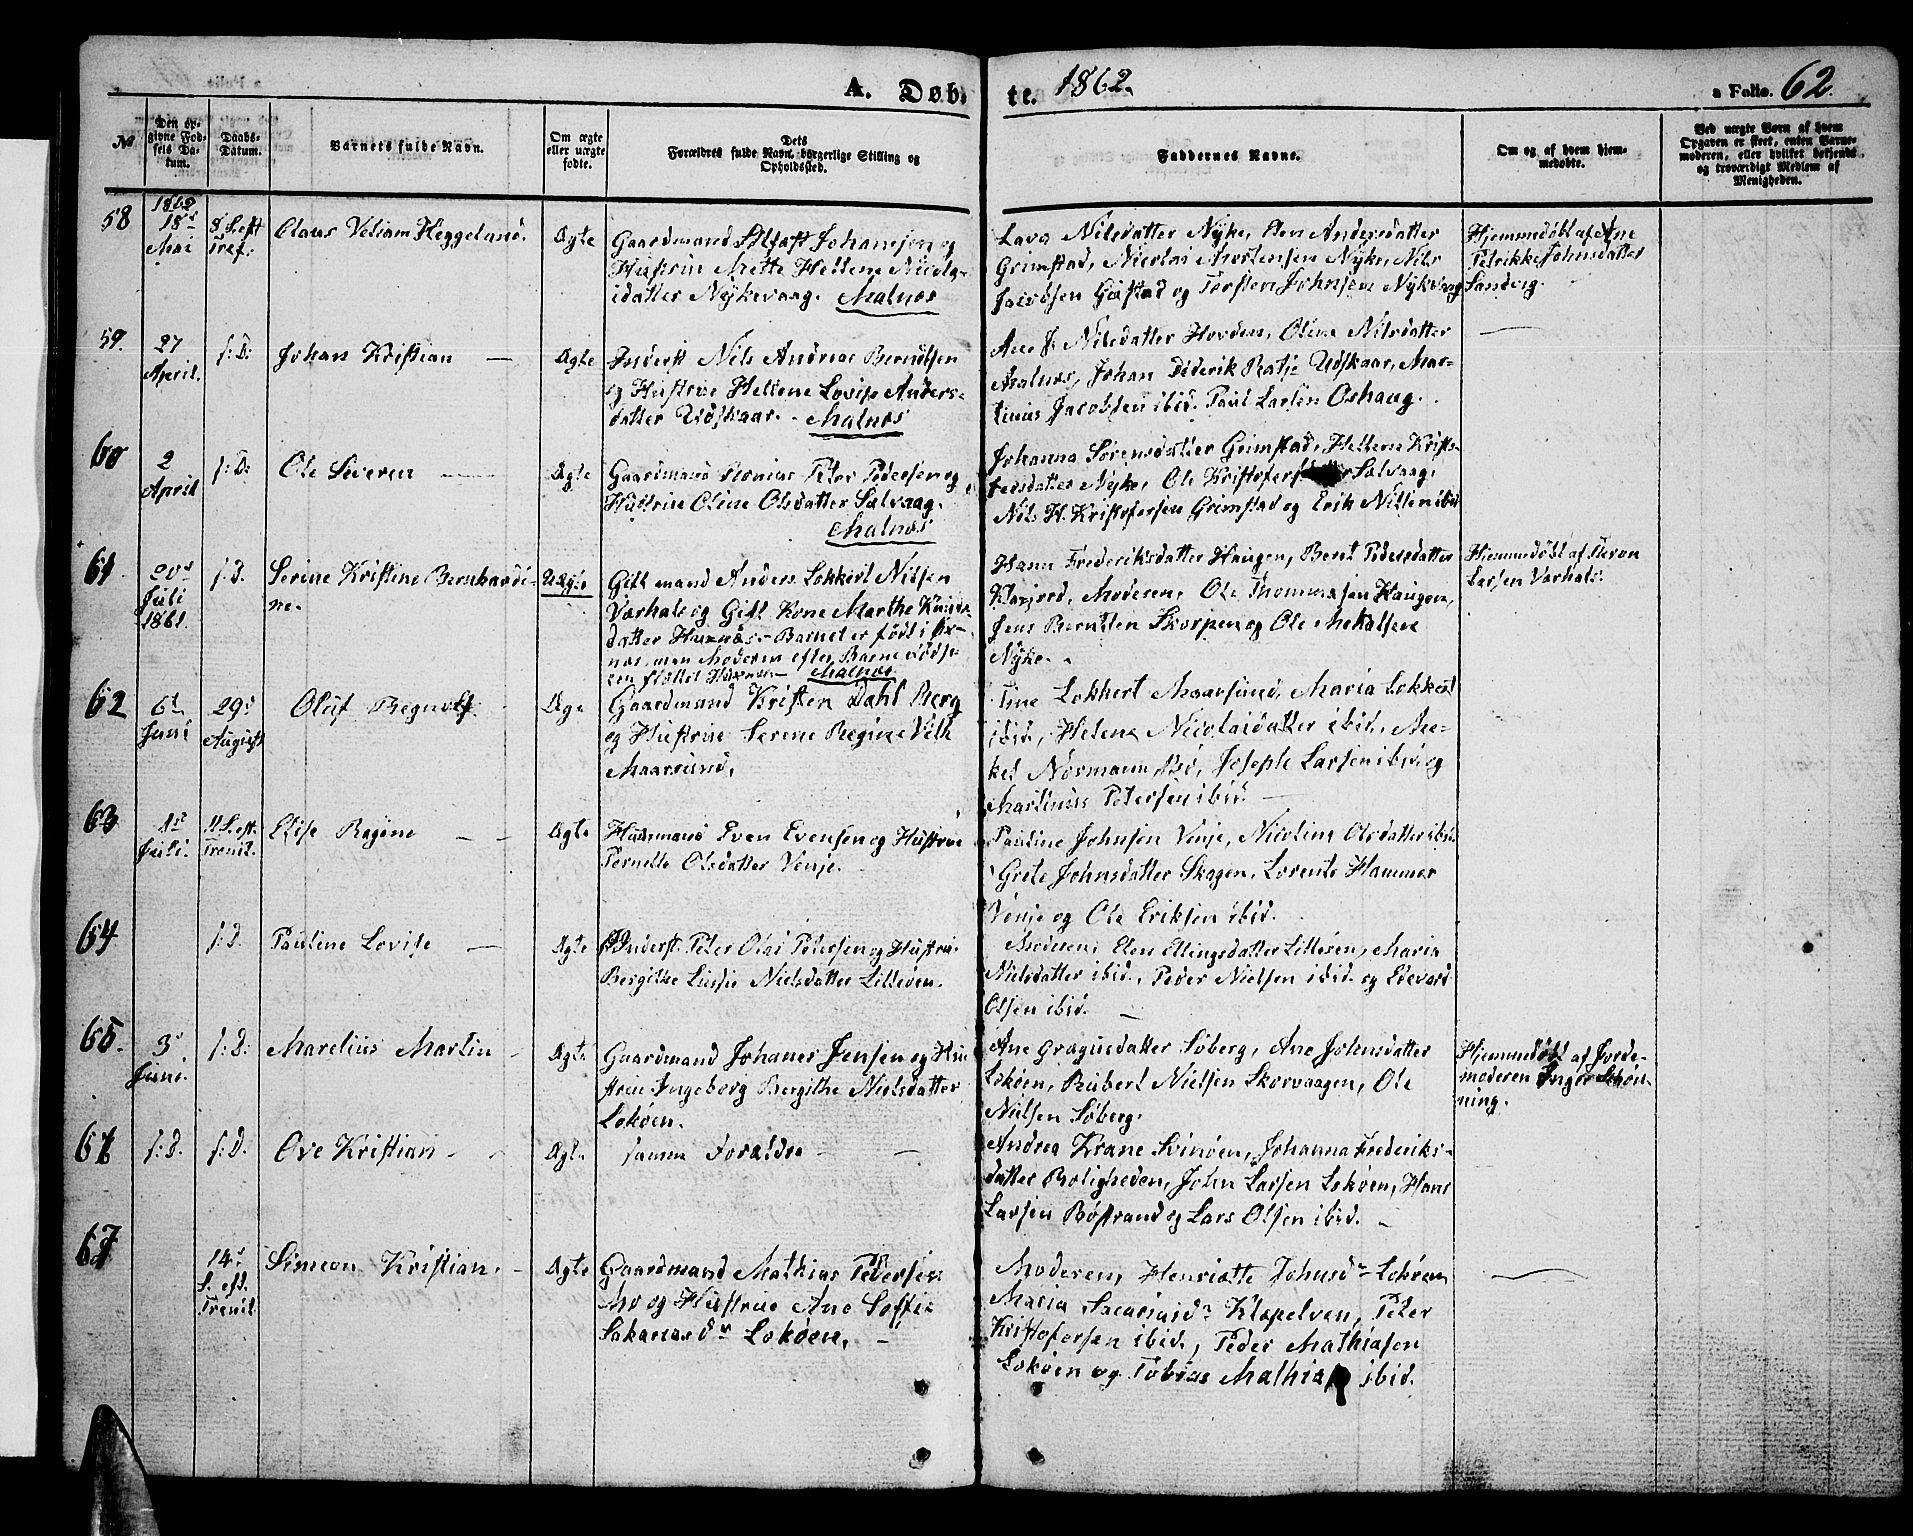 A. Døb-
te. 1862.
a Folio. 62
№
Den opgivne Fødsels Datum.
Daabs-Datum.
Barnets fulde Navn.
Om ægte eller uægte fødte.
Dets Forældres fulde Navn, borgerlige Stilling og Opholdssted.
Faddernes Navne.
Om og af hvem hjemmedøbte.
Ved uægte Børn af hvem Opgaven er skeet, enten Barnemoderen, eller hvilket bekjendt og troværdigt Medlem af Menigheden.
58
1862
18de Mai
8 S. eft Tref.
Claus Veliam Heggeland.
Ægte
Gaardmand Johansen og
Hustrue Mette Hellene Nicola-
idatter Nykevaag. Malnæs
Lava Nilsdatter Nyke, Elen Andersdatter
Grimstad, Nicolai Mortensen Nyke, Nils
Jacobsen Gustad og Torsten Johnsen Nykvaag
Hjemmedøbt af Ane
Petrikke Johnsdatter
Sandvig.
59.
27 April.
s: D:
Johan Kristian —
Ægte
Inderst Nils Andreas Berndtsen
og Hustrue Hellene Lovise Anders-
datter Udskaar. - Malnæs
Ane J. Nilsdatter Hovden, Oline Nilsdatter
Malnæs, Johan Diderik Ratje Udskaar, Mar-
tinus Jacobsen ibid. Paul Larsen Oshaug.
60
2 April
s: D:
Ole Severen —
Ægte
Gaardmand Peter Pedersen og
Hustrue Oline Olsdatter Salvaag.
Malnæs
Johanna Sørensdatter Grimstad, Hellene Krist-
fersdatter Nyke, Ole Kristofersen Salvaag,
Nils H. Kristofersen Grimstad og Erik Nilsen ibid
61
20de Juli 1861.
s: D.
Serine Kristine Bernhardi-
ne.
Uægte
Gift mand Anders Lokkert Nilsen
Varhals og Gift Kone Marthe Knuds-
datter Husnæs. - Barnet er født i Øx-
næs, men Moderen efter Barnefødse-
len flyttet Malnæs
Hann Frederiksdatter Haugen, Beret Pedersdatter
Moderen, Ole Thommassen Haugen,
Jens Berntsen Skorpen og Ole Mekalsen
Nyke.
Hjemmedøbt af
Larsen Varhals.
62
6te Juni
29de August
Oluf Regnolf
Ægte
Gaardmand Kristen Dahl Berg
og Hustrue Serene Regine Veth
Maarsund.
Tine Lokkert Maarsund, Maria Lokkert
ibid, Helena Nicolaidatter ibid. Me-
kel Normann Bø, Joseph Larsen ibid og
Martinus Petersen ibid. —
63
1ste Juli.
11 S. eft. Trenit.
Elise Ragine —
Ægte
Husmand Even Evensen og Hustrue
Pernelle Olsdatter Venje.
Pauline Johnsen Venje, Nicolina Olsdatter ibid.
Grete Johnsdatter Skagen, Lorents Hammer
Venje og Ole Eriksen ibid.
64
s: D.
Pauline Lovise —
Ægte
Inderst Peter Olai Petersen og Hustrue
Bergithe Lusie Nielsdatter Lilleøen.
Moderen, Elen Ellingsdatter Lilleøen, Maria
Nielsdatter ibid., Peder Nielsen ibid. og Edevard
Olsen ibid. —
65.
3de Juni.
s: D:
Marelius Martin -
Ægte
Gaardmand Johanes Jensen og Hu-
strue Ingeborg Bergithe Nielsdatter
Lokøen.
Ane Gragusdatter Søberg, Ane Johnsdatter
Lokøen, Rubert Nielsen Skorvaagen, Ole
Nielsen Søberg.
Hjemmedøbt af Jorde-
moderen Inger Schøn-
ning.
66
s: D.
s: D.
Ove Kristian -
Ægte
samme Foraldre —
Andrea Krane Svinøen, Johanna Frederiks-
datter Boligheden, John Larsen Lokøen, Hans
Larsen Bøstrand og Lars Olsen ibid. -
67
14de S. eft. Trenit.
Simeon Kristian. -
Ægte
Gaardmand Mathias Pedersen
Mo og Hustrue Ane Soffie
Sakariasdr Lokøen. —
Moderen, Henriette Johnsdr Lokøen
Maria Klapelven, Peter
Kristofersen ibid., Peder Mathiasen
Lokøen og Tobias Mathias ibid.